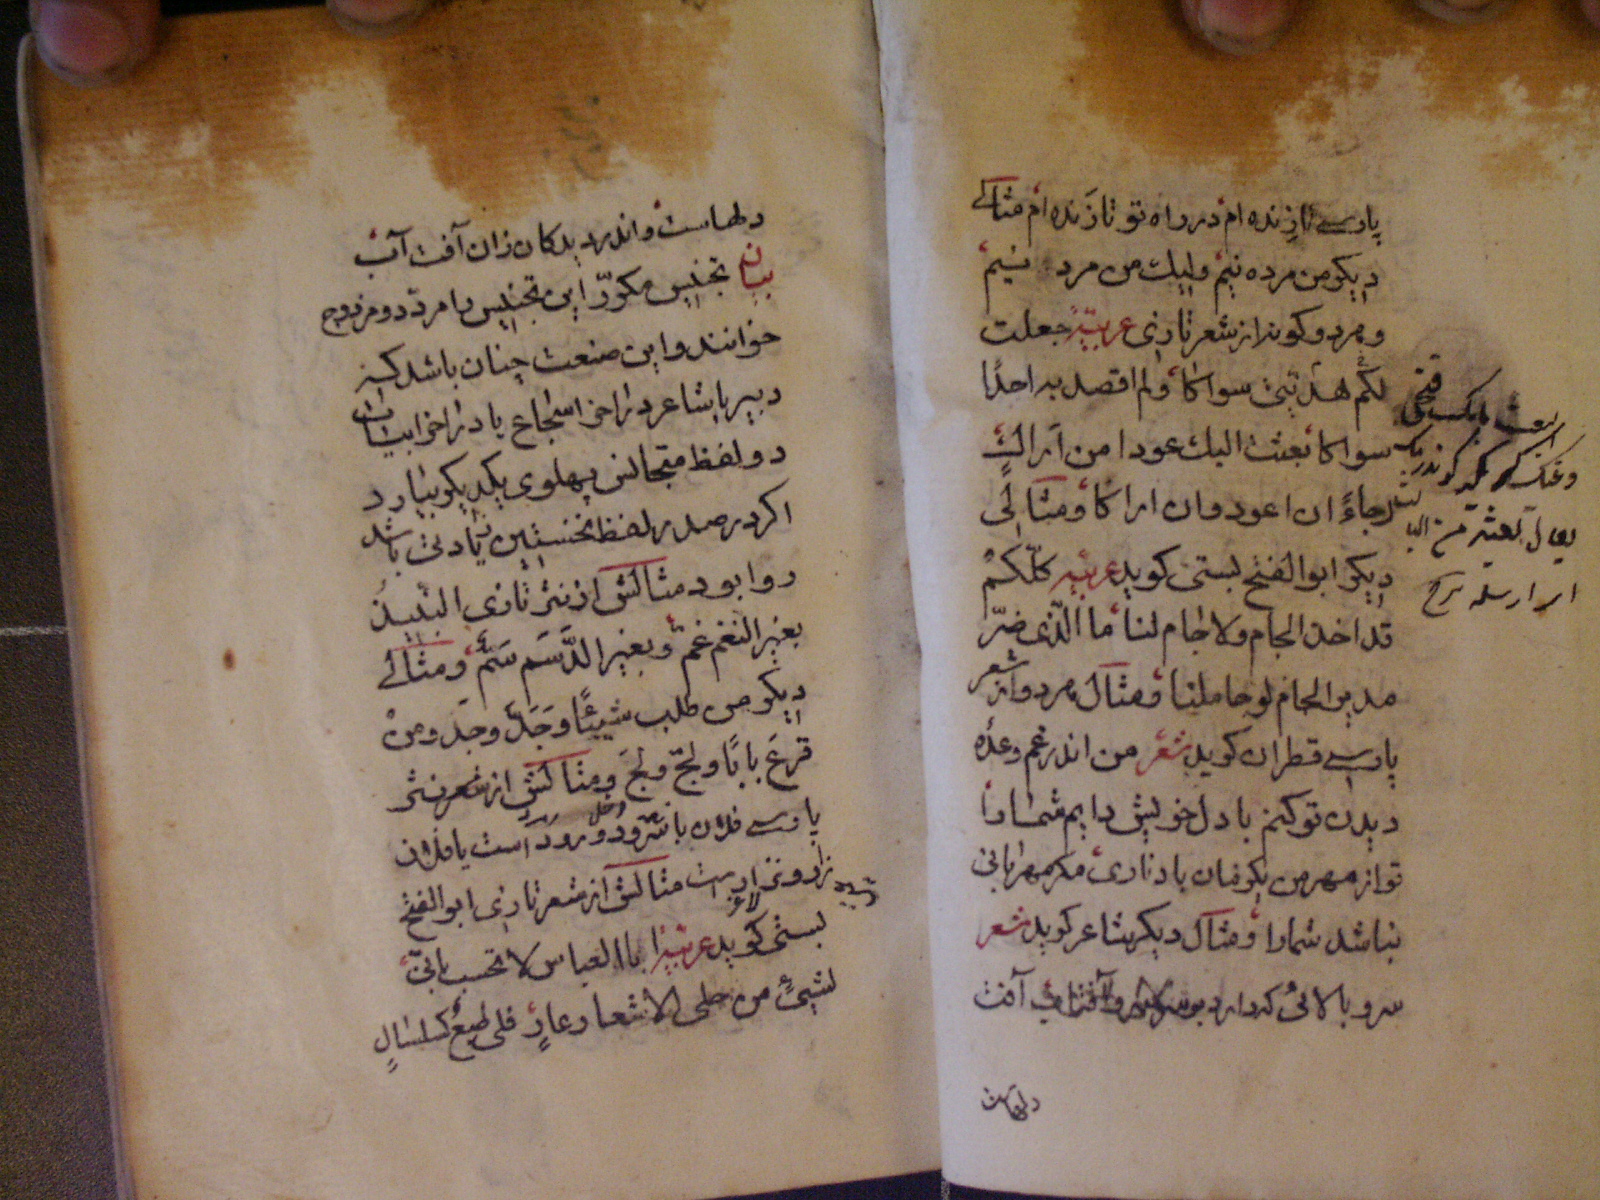 پارسے تازنده ام در راه تو تازَنده ام مثالے
دیکر من مرده نیم ولیك من مرد نیم
و مرد و کوید از شعر تازی عربیّة جعلت
لکم هدیتی سواکا ولم اقصد به احدًا
سواکا بعثت الیك عودا من اَراكٍ
رجاءً ان اعود وان اراکا و مثالے
دیکر ابو الفتح بستی کوید عربیّة کلّکمْ
قد اخذ الجام ولا جام لنا ما الّذی ضرّ
مدیر الجام لو جاملنا و مثال مرد و از شعر
پارسے قطران کوید شعر من اندر غم وعدهٔ
دیدن تو کنم با دل خویش دایم شمارا
تو از مهر من یکزمان یاد ناری مکر مهربانی
نباشد شمارا و مثال دیکر شاعر کوید شعر
سرو بالائی که دارد بر سر سرو آفتاب آفت
دلهاست
فتحی
ابعث
یقال بعثته من
ای ارسله
دلهاست و اندر دیدکان زان آفت آب
بیان تجنیس مکرّر این تجنیس را مردّد و مزدوج
خوانند و این صنعت چنان باشد که
دبیر یا شاعر در اخر اسجاع یا در اخر ابیات
دو لفظ متجانس پهلوی یکدیکر بیارد
اکر در صدر لفظ نخستین زیادتی باشد
روا بود مثالش از نثر تازی النبیذُ
بغیر النغم غمّ و بغیر الدَّسَم سَمٌّ و مثالے
دیکر من طلب شیئًا وَجَدَّ وجد ومنْ
قرعَ بابًا ولجّ ولجَ و مثالش از شعر نثر
پارسے فلان با سرود و رود است یا فلان
زار و نزارست مثالش از شعر تازی ابو الفتح
بستی کوید عربیّة ابا العباس لا تحسب بانّی
لشیئٍ من حلی الاشعار عارٍ فلی طبعٌ کسلسالٍ